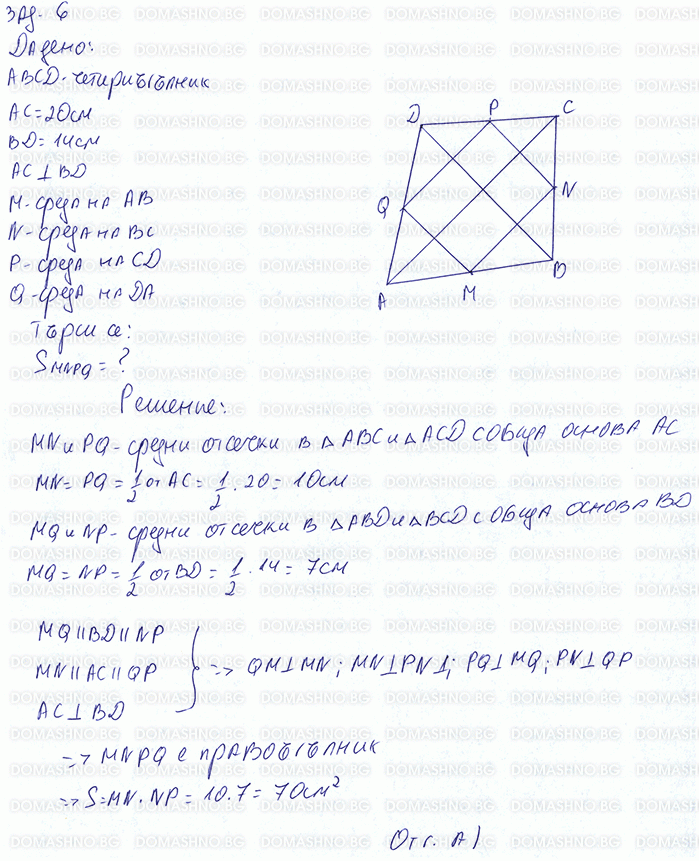 Зад. 6
Дадено:
ABCD - четириъгълник
AC = 20см
BD = 14см
AC ⊥ BD
M - среда на AB
N - среда на BC
P - среда на CD
Q - среда на DA
Търси се:
S MNPQ = ?
D P C
Q N
A M B
Решение:
MN и PQ - средни отсечки в △ ABC и △ ACD с обща основа AC
MN = PQ = 1/2 от AC = 1/2 . 20 = 10см
MQ и NP - средни отсечки в △ABD и △BCD с обща основа BD
MQ = NP = 1/2 от BD = 1/2 . 14 = 7см
MQ || BD || NP
MN || AC || QP } => QM⊥MN; MN⊥PN⊥; PQ⊥MQ; PN⊥QP
AC ⊥ BD
=> MNPQ е правоъгълник
=> S = MN . NP = 10.7 = 70см²
Отг. А)